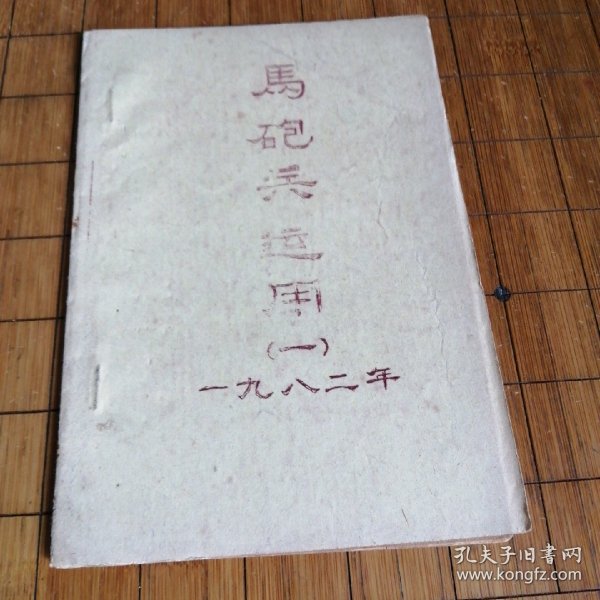 馬砲兵运用
(一)
一九八二年
孔夫子旧书网
www.kongfz.com